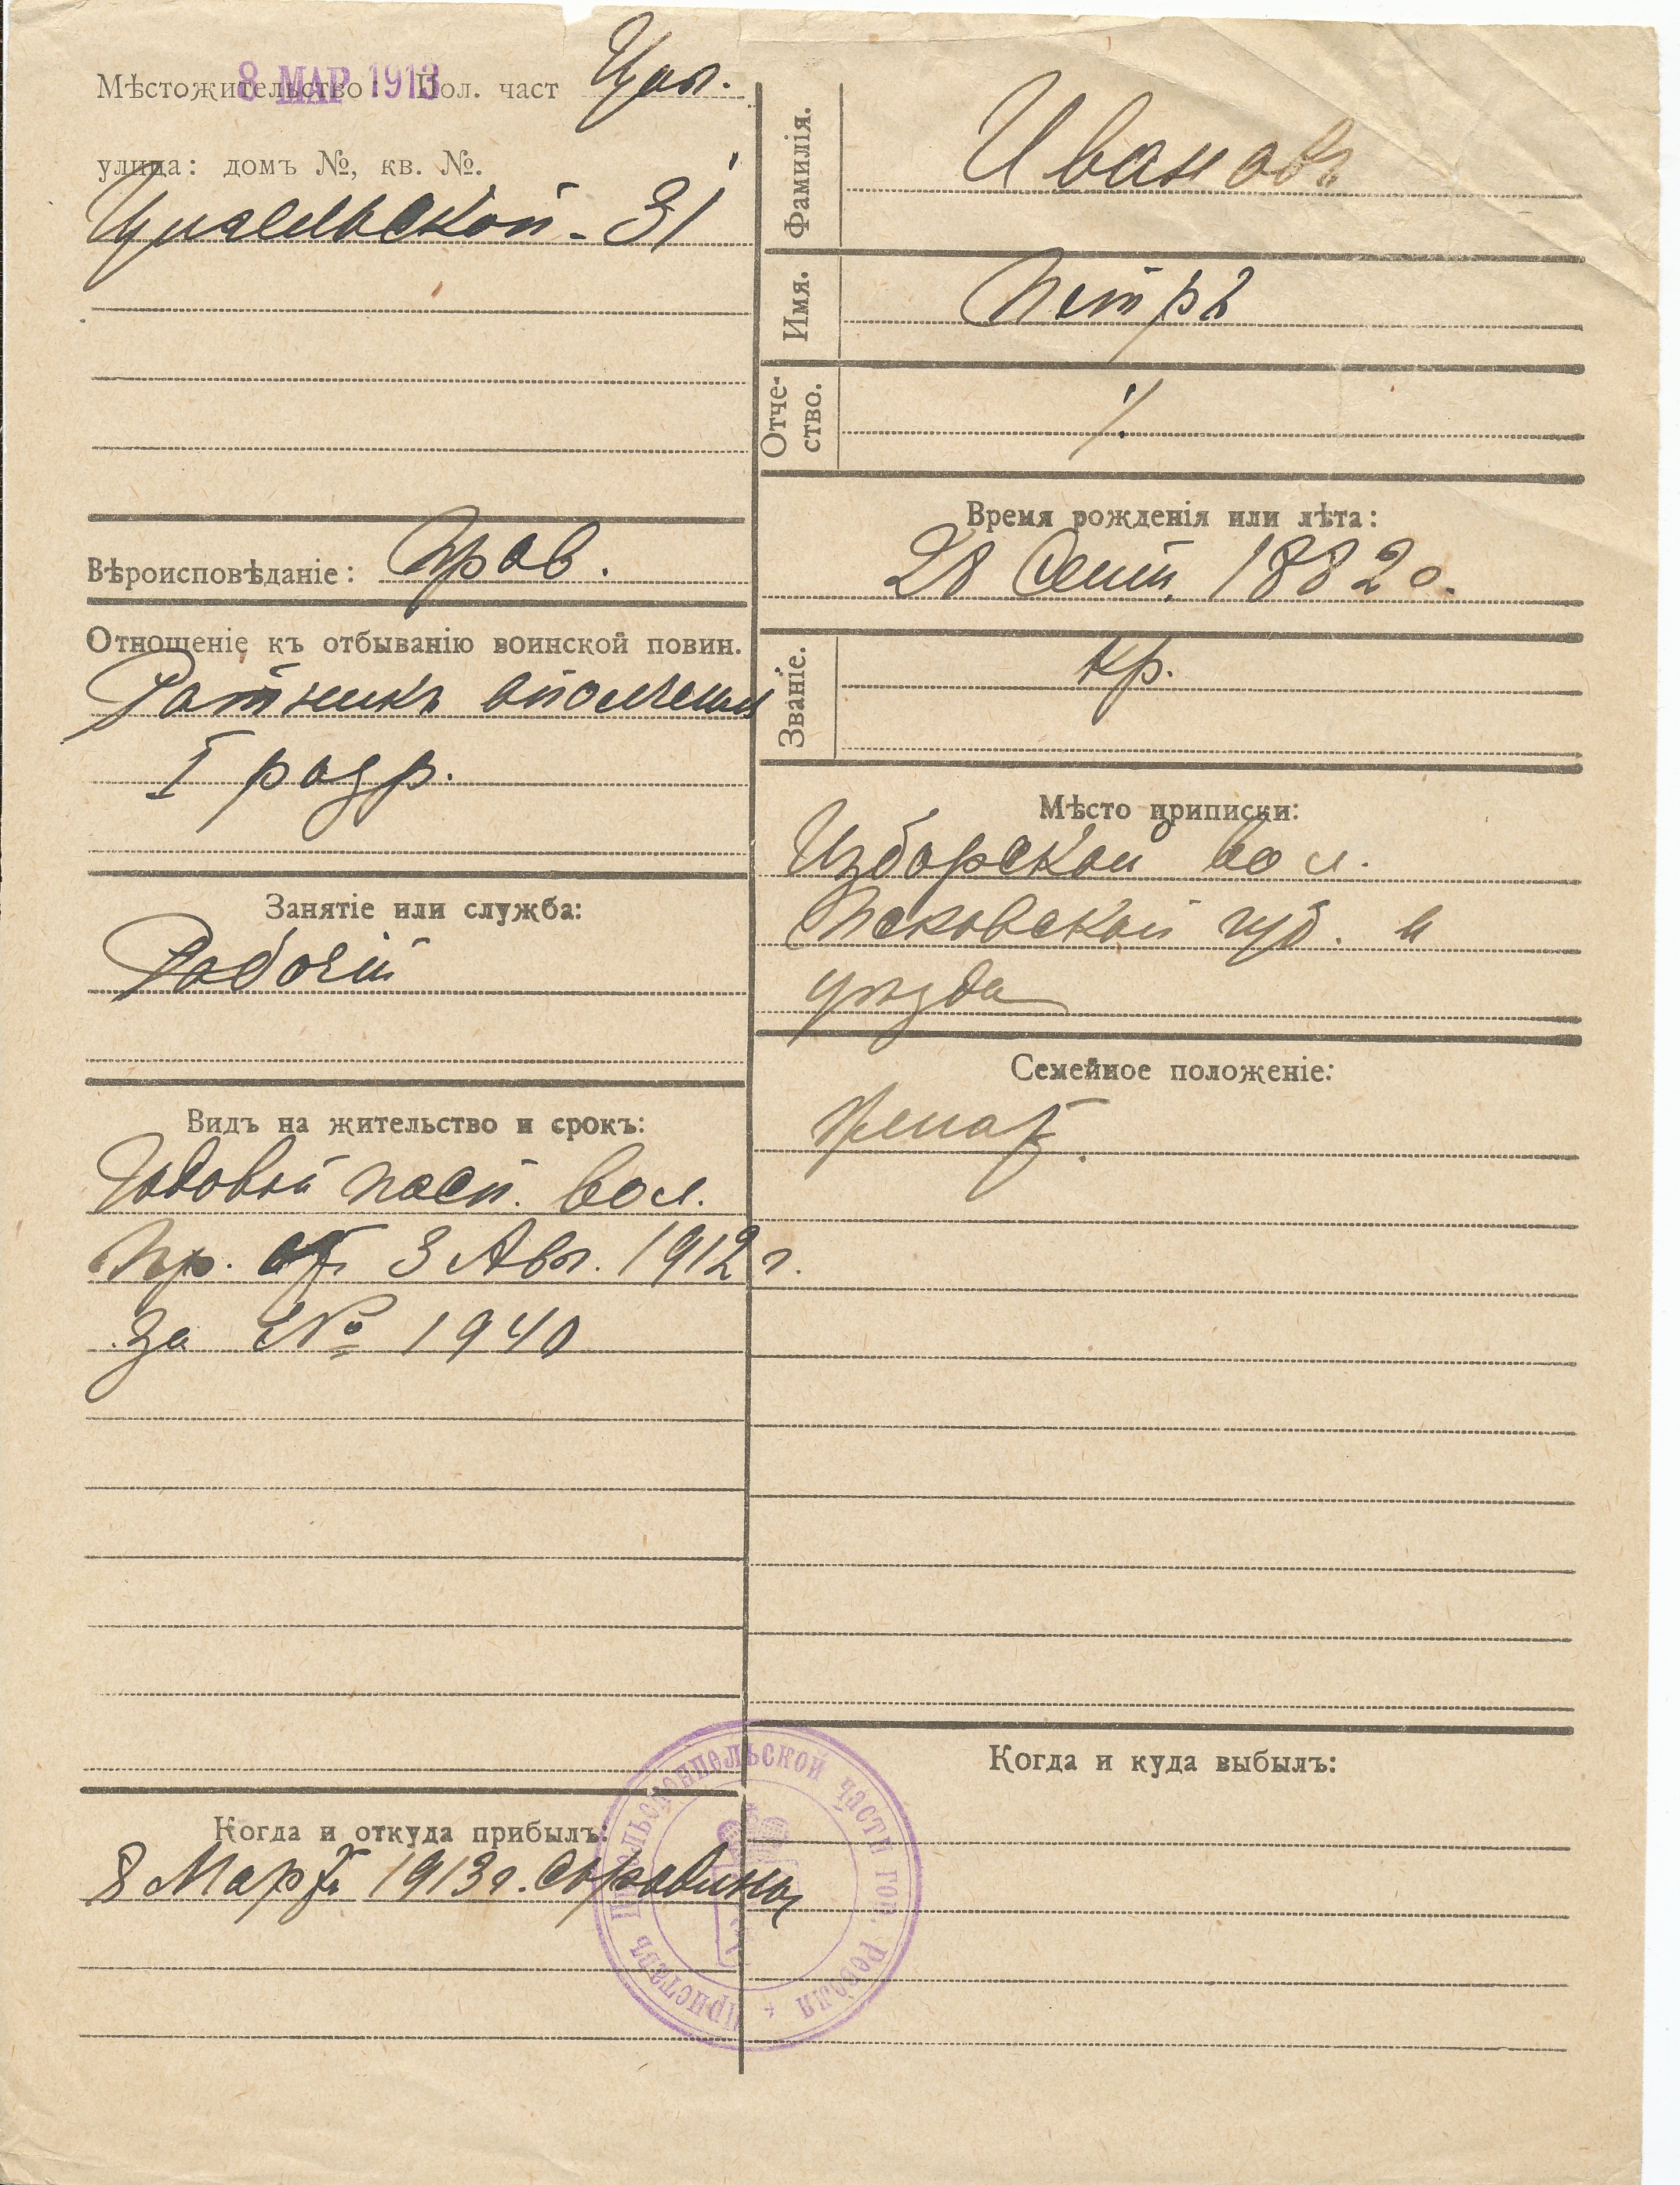 8 МАР 1913
Мѣстожительство: Пол. част Циг.
улица: домъ №, кв. №.
Цигельской - 31
Вѣроисповѣданіе: Прав.
Отношеніе къ отбыванію воинской повин.
Ратникъ ополченія
I разр.
Занятіе или служба:
Рабочій
Видъ на жительство и срокъ:
Годовой пасп. вол.
пр. отъ 3 Авг. 1912 г.
за № 1940
Когда и откуда прибылъ:
8 Марта 1913 г.
Фамилія.
Ивановъ
Имя.
Петръ
Отче-
ство.
Время рожденія или лѣта:
28 Сент. 1882 г.
Званіе.
кр.
Мѣсто приписки:
Изборской вол.
Псковской губ. и
уѣзда
Семейное положеніе:
Женат.
Когда и куда выбылъ:
Приставъ Цигельскоппельской части гор. Ревеля